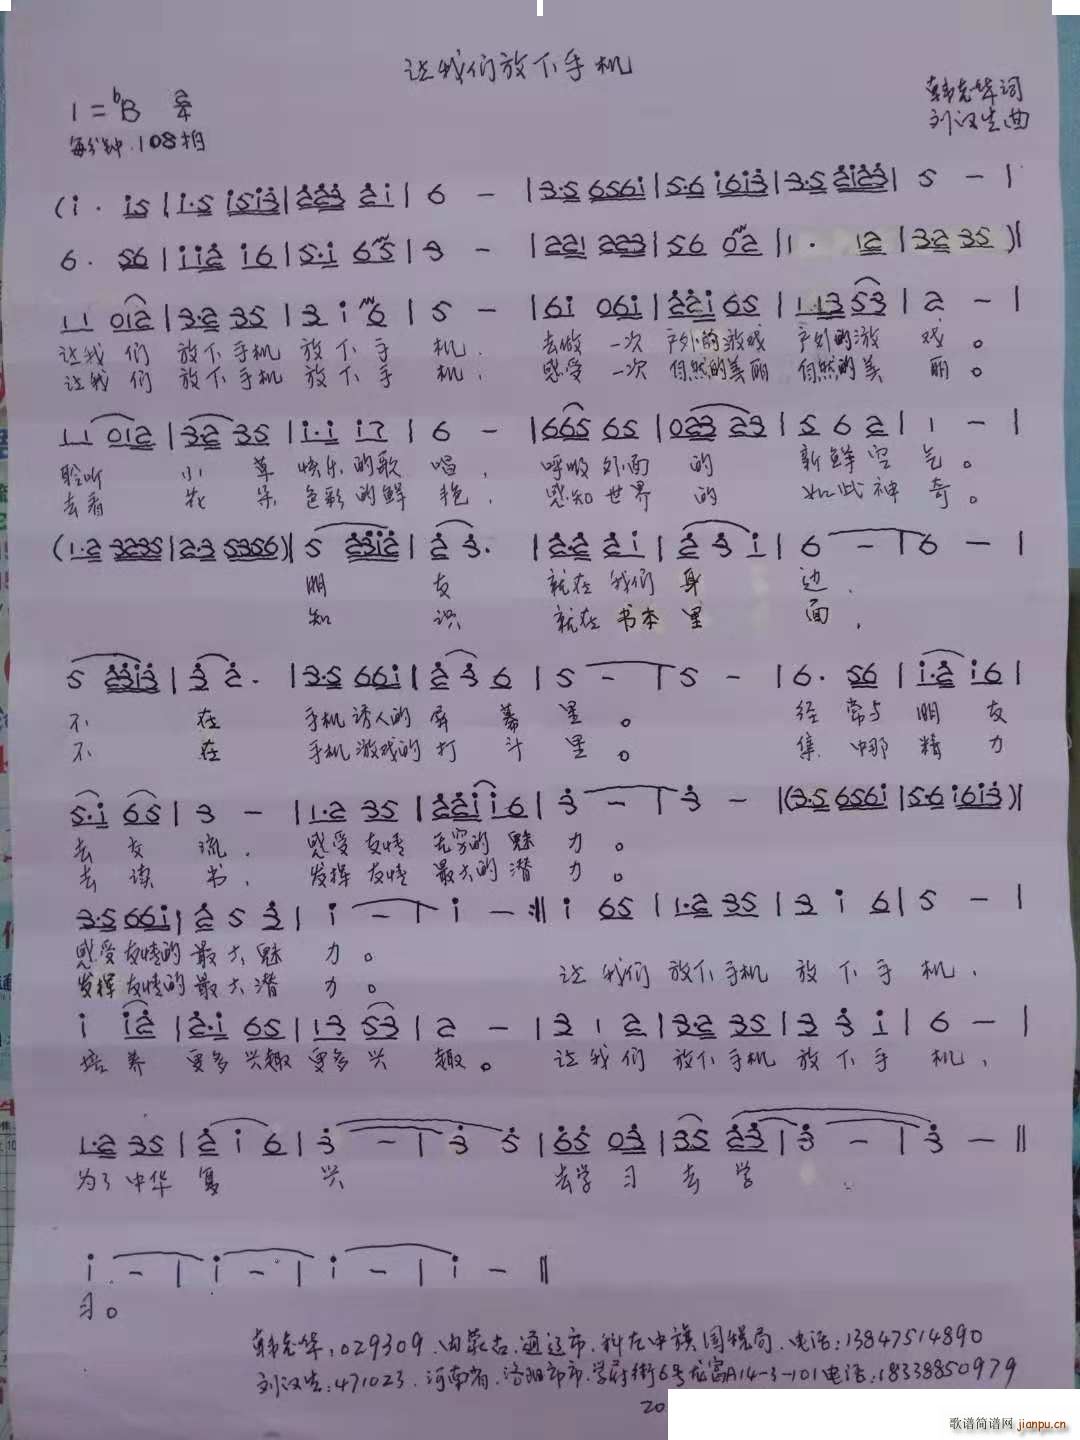 让我们放下手机
1=♭B 2/4
每分钟.108拍
韩志华词
刘汉生曲
(i. i5 | i.5 i5i3 | 223 2i | 6 - | 3.5 656i | 5.6 i6i3 | 3.5 2i23 | 5 - |
6. 56 | ii2 i6 | 5.i 65 | 3 - | 221 223 | 56 02 | 1. 12 | 3.2 35 )|
11 012 | 3.2 35 | 3 i 6 | 5 - | 6i 06i | 22i 65 | 1.13 53 | 2 - |
让我们 放下手机 放下手机, 去做一次 户外的游戏 户外的游戏。
让我们 放下手机 放下手机, 感受一次 自然的美丽 自然的美丽。
11 012 | 32 35 | i.i i7 | 6 - | 665 65 | 023 23 | 5 6 2 | 1 - |
聆听 小草 快乐的歌唱, 呼吸外面的 新鲜空气。
去看 花朵 色彩的鲜艳, 感知世界的 如此神奇。
(1.2 3235 | 2.3 5356 )| 5 23i2 | 2 3. | 2.2 2i | 2 3 i | 6 - | 6 - |
朋友 就在我们身边,
知识 就在书本里面,
5 23i3 | 3 2. | 3.5 66i | 2 3 6 | 5 - | 5 - | 6. 56 | i.2 i6 |
不在 手机诱人的屏幕里。 经常与朋友
不在 手机游戏的打斗里。 集中那精力
5.i 65 | 3 - | 1.2 35 | 22i i6 | 3 - | 3 - |(3.5 656i | 5.6 i6i3 )|
去交流, 感受友情 无穷的魅力。
去读书, 发挥友情 最大的潜力。
3.5 66i | 2 5 3 | i - | i - :|| i 65 | 1.2 35 | 3 i 6 | 5 - |
感受友情的最大魅力。
发挥友情的最大潜力。 让我们 放下手机 放下手机,
i i2 | 2.i 65 | 13 53 | 2 - | 3 1 2 | 3.2 35 | 3 3 i | 6 - |
培养 更多兴趣 更多兴趣。 让我们 放下手机 放下手机,
1.2 35 | 2 i 6 | 3 - | 3 5 | 65 03 | 35 23 | 3 - | 3 - ||
为了中华复兴 去学习去学
i - | i - | i - | i - ||
习。
韩志华:029309.内蒙古.通辽市.科左中旗国税局.电话:13847514890
刘汉生:471023.河南省.洛阳市市.学府街6号龙富A14-3-101电话:18338850979
20
歌谱简谱网 jianpu.cn